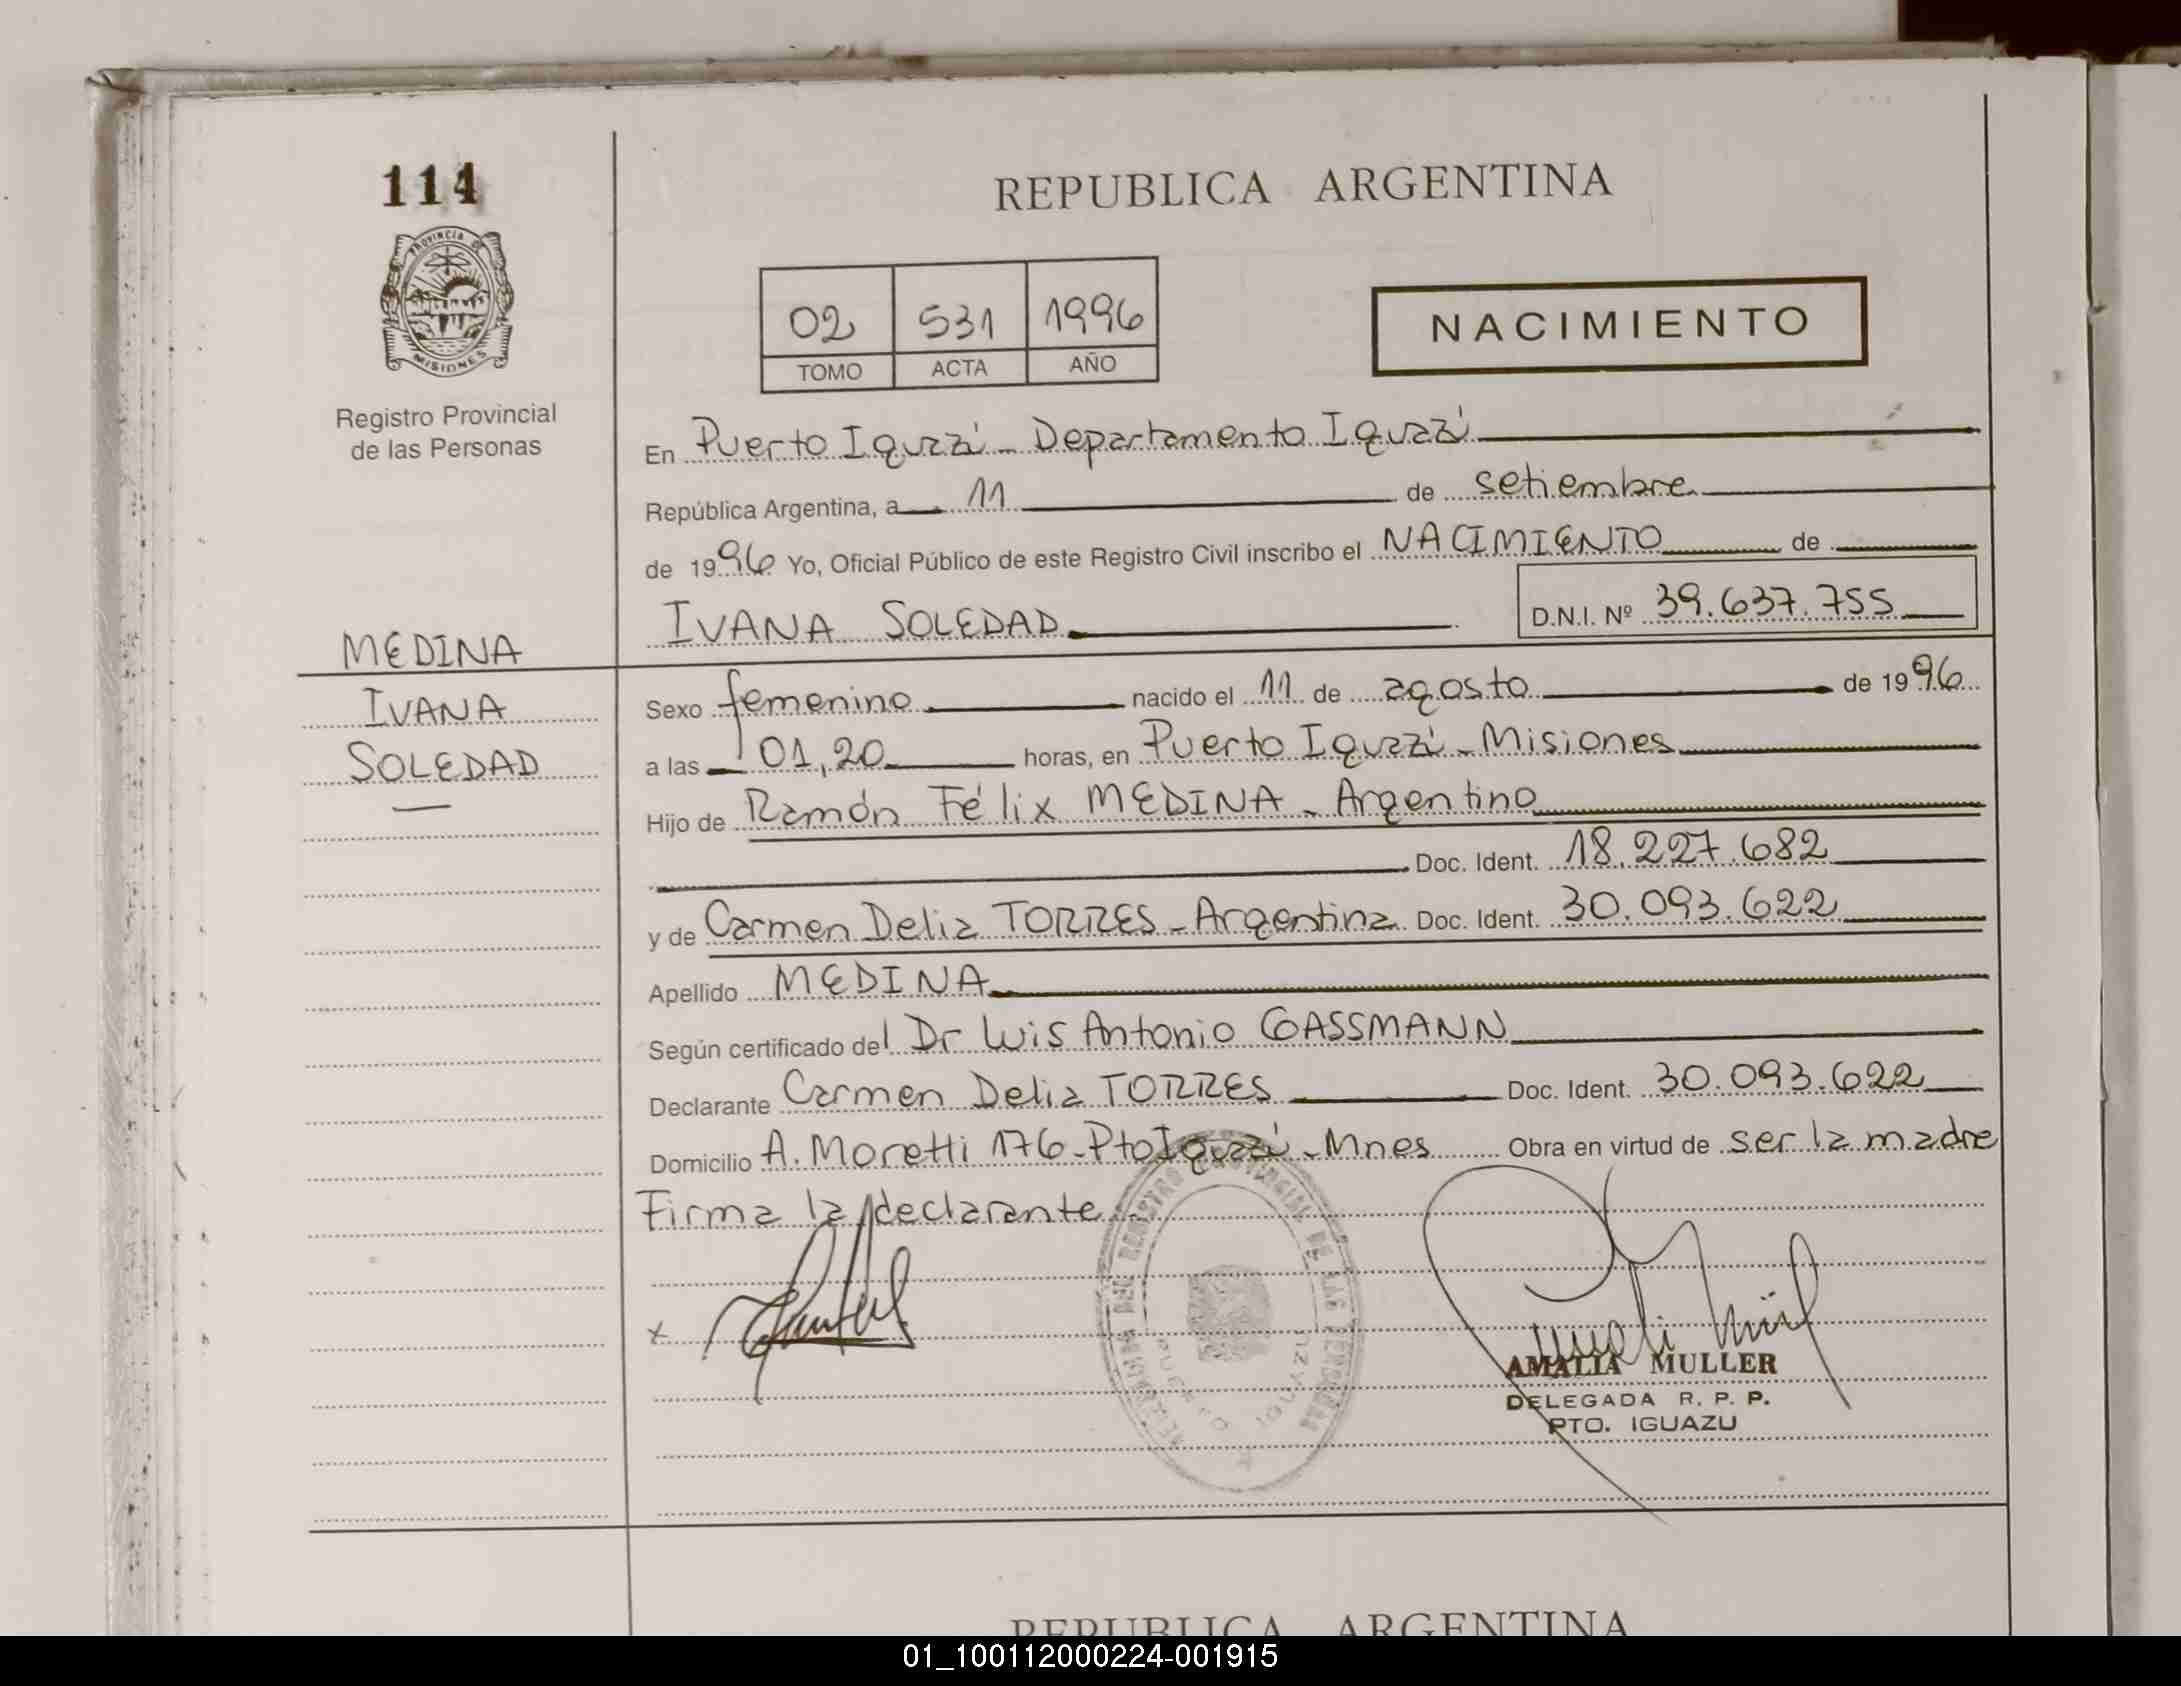 114
PROVINCIA DE
MISIONES
Registro Provincial
de las Personas
MEDINA
IVANA
SOLEDAD
REPUBLICA ARGENTINA
02 531 1996
TOMO ACTA AÑO
NACIMIENTO
En Puerto Iguazú - Departamento Iguazú
República Argentina, a 11 de setiembre
de 1996 Yo, Oficial Público de este Registro Civil inscribo el NACIMIENTO de
IVANA SOLEDAD D.N.I. Nº 39.637.755
Sexo femenino nacido el 11 de agosto de 1996
a las 01,20 horas, en Puerto Iguazú - Misiones
Hijo de Ramón Félix MEDINA - Argentino
Doc. Ident. 18.227.682
y de Carmen Delia TORRES - Argentina Doc. Ident. 30.093.622
Apellido MEDINA
Según certificado del Dr Luis Antonio GASSMANN
Declarante Carmen Delia TORRES Doc. Ident. 30.093.622
Domicilio A. Moretti 176 - Pto Iguazú - Mnes Obra en virtud de ser la madre
Firma la declarante
x
AMALIA MULLER
DELEGADA R. P. P.
PTO. IGUAZU
REPUBLICA ARGENTINA
01_100112000224-001915